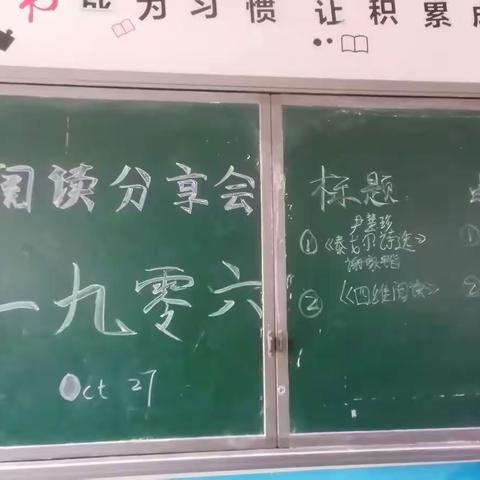 成为习惯 让积累成
阅读分享会
一九零六
Oct 27
标题
①
尹慧珍
《泰戈尔诗选》
② 《四维阅读》
②